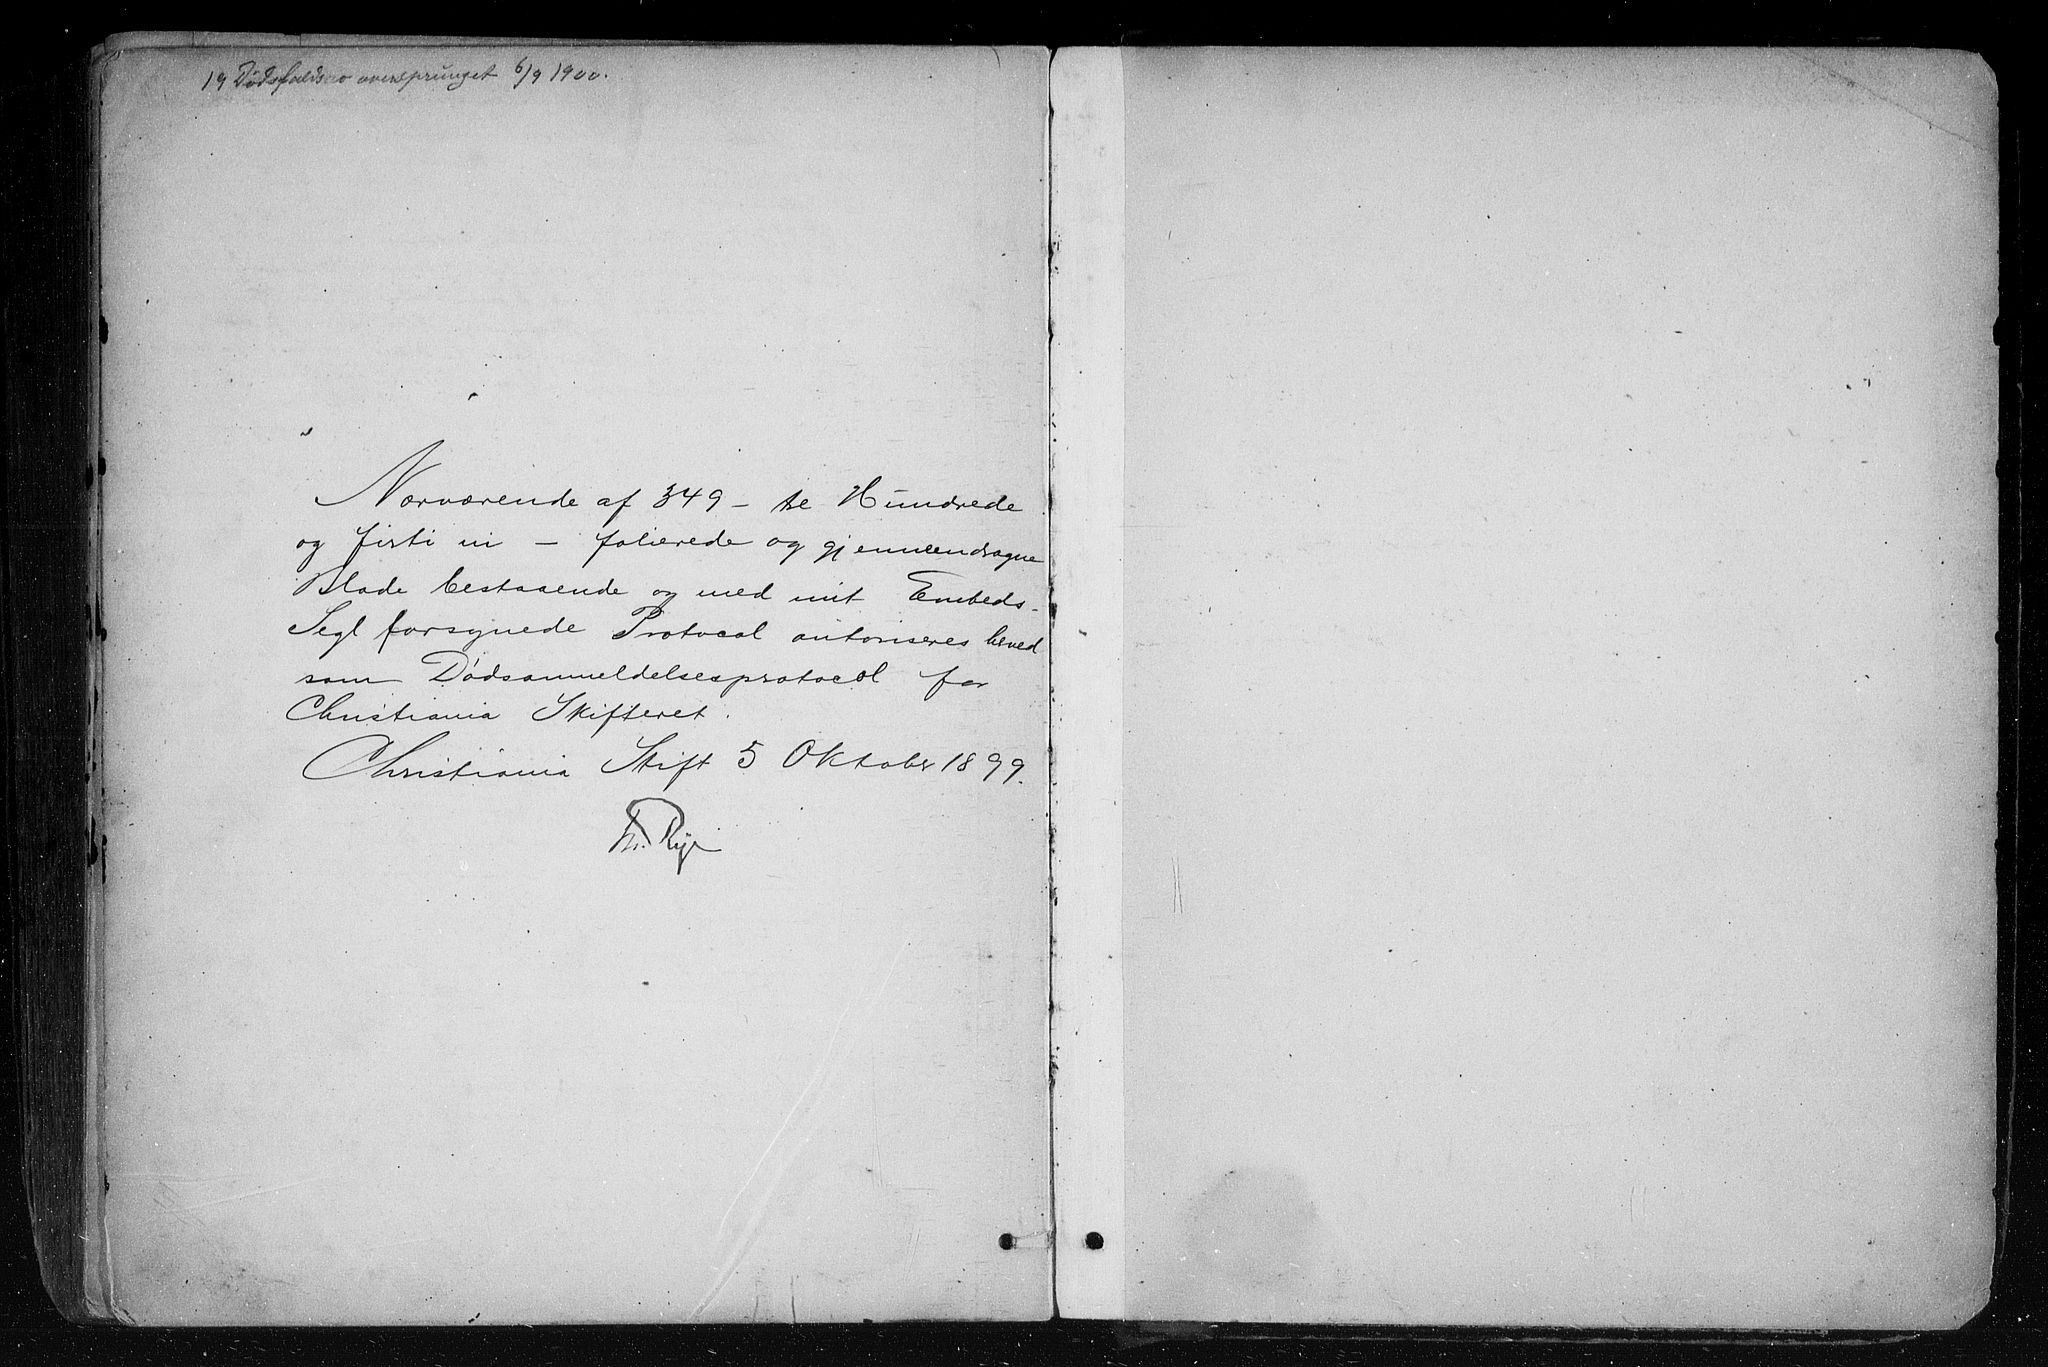 19 Dødsfaldsno oversprunget 6/9 1900.
Nærværende af 349 – tre Hundrede
og firti ni – folierede og gjennemdragne
Blade bestaaende og med mit Embeds-
Segl forsynede Protocol autoriseres herved
som Dødsanmeldelsesprotocol for
Christiania Skifteret.
Christiania Stift 5 Oktober 1899.
Rye